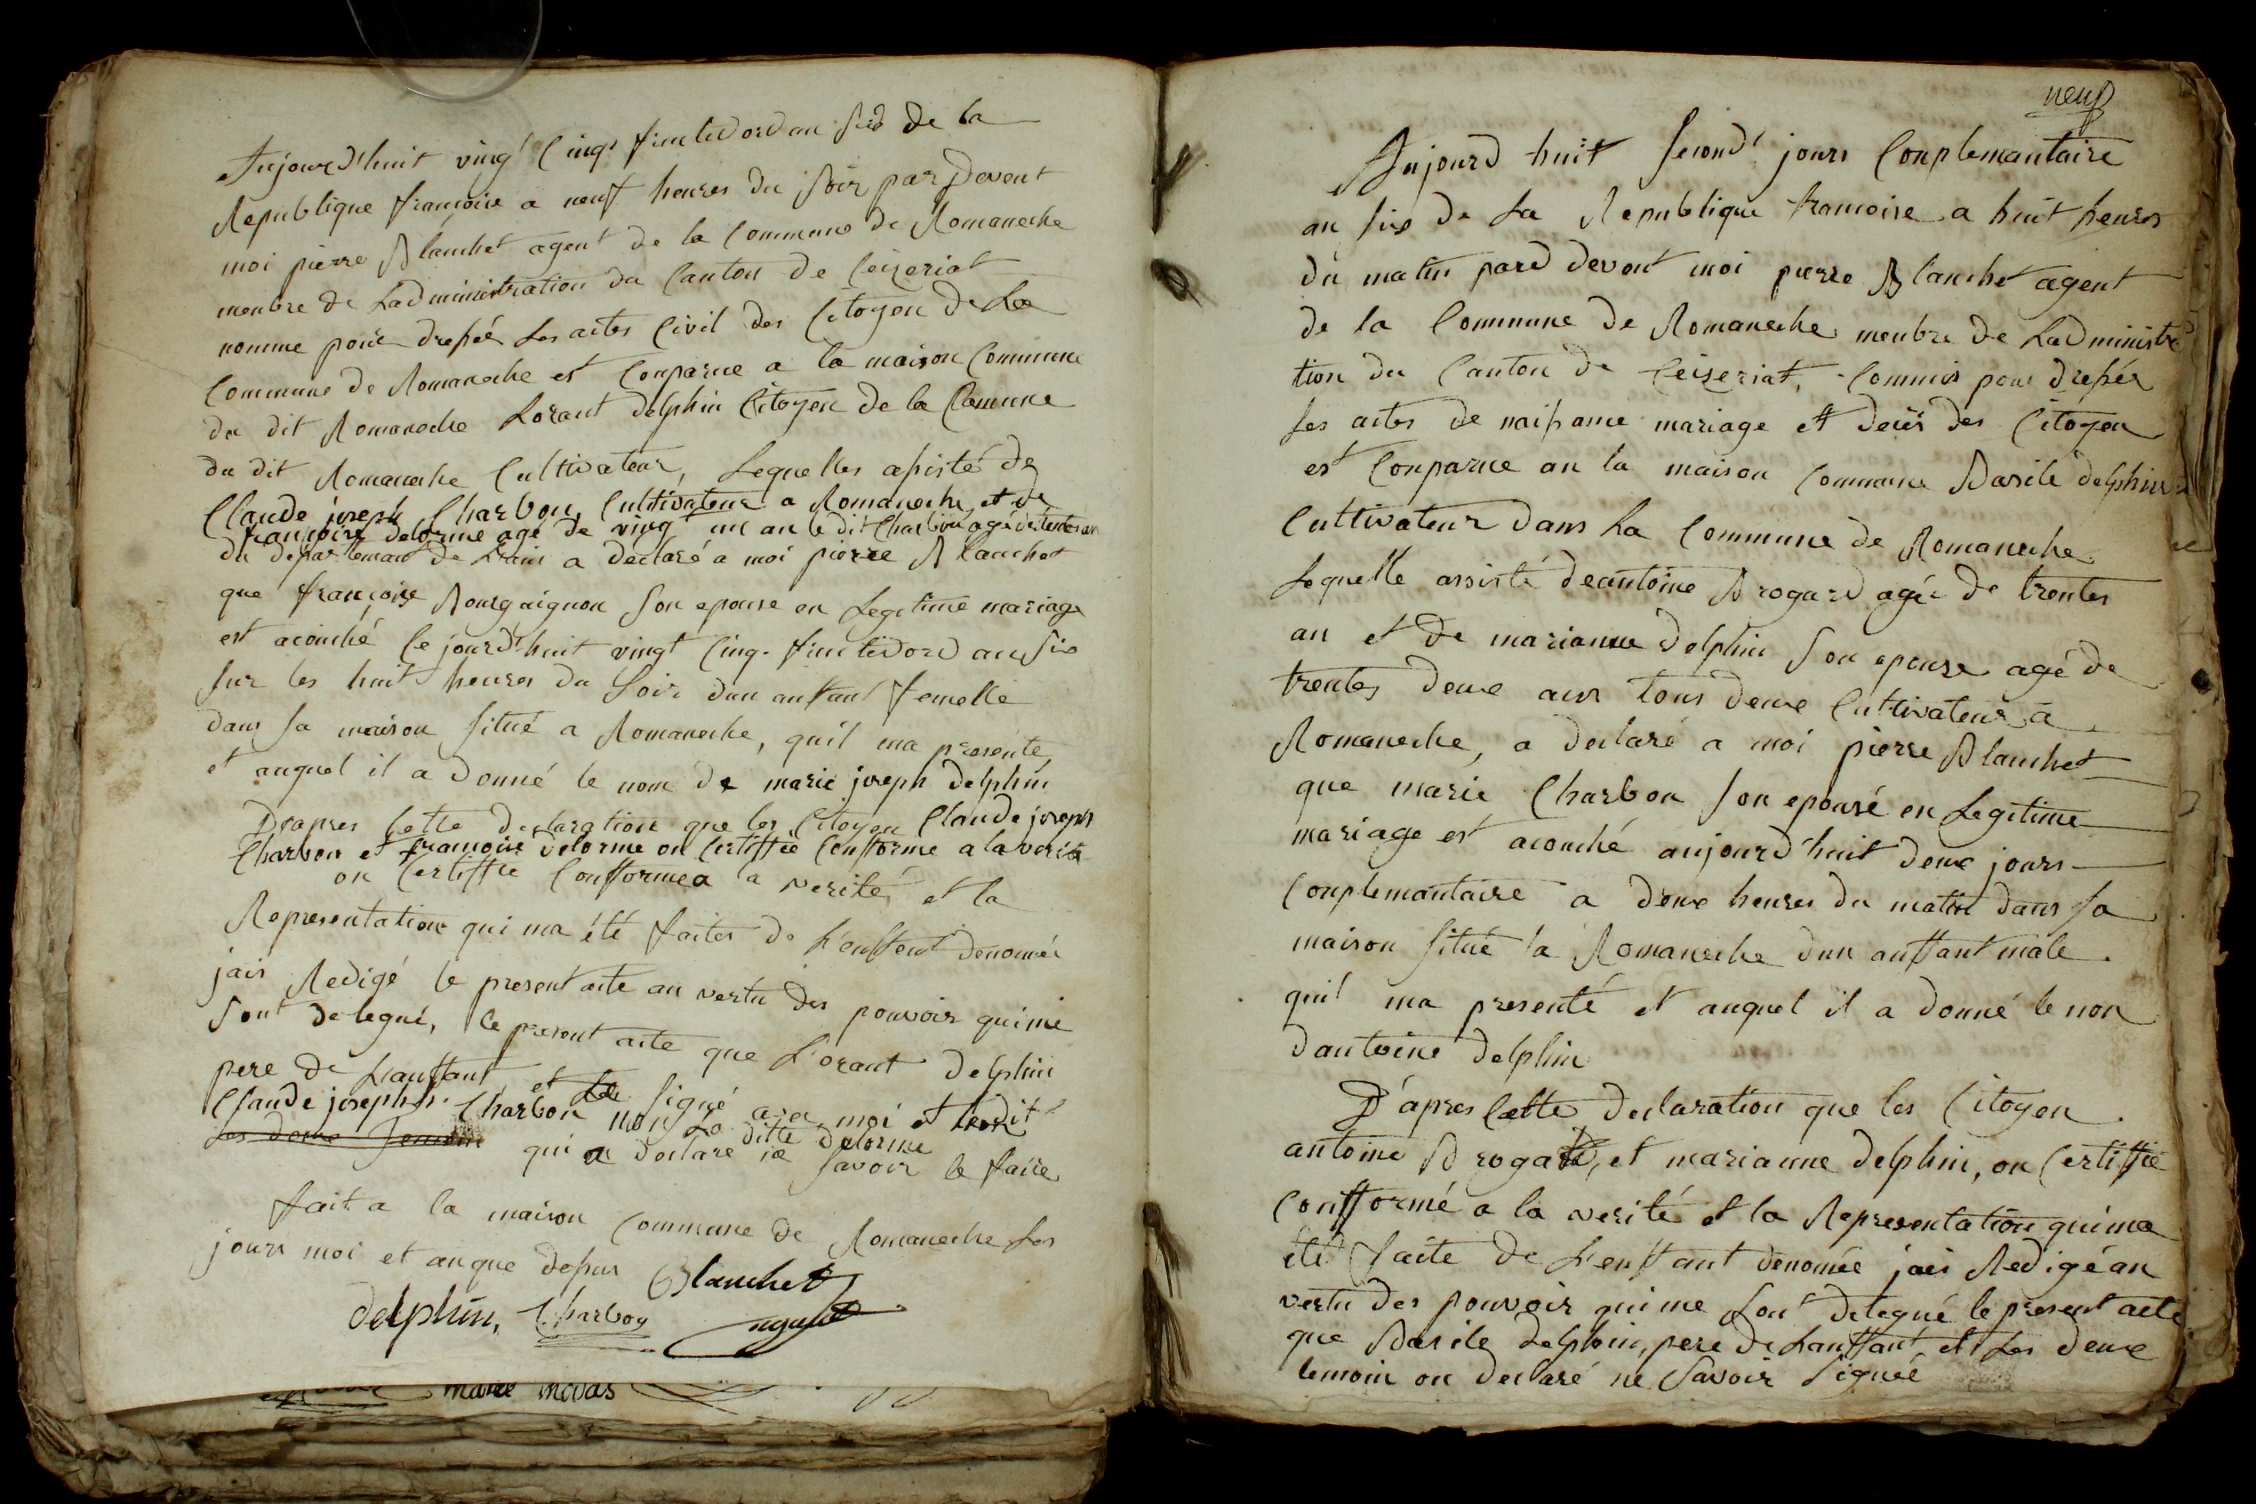 Aujourd'huit vingt Cinq fructidord an six de la
Republique francoise a neuf heures du soir par devent
moi pierre Blanchet agent de la Commune de Romaneche
menbre de Ladministration du Canton de Ceizeriat
nomme pour dressé Les actes Civil des Citoyen de La
Commune de Romaneche est Conparue a la maison Commune
du dit Romaneche Lorant delphin Citoyen de la Commune
du dit Romaneche Cultivateur, Lequelles assisté de
Claude joseph Charbon, Cultivateur a Romaneche, et de
francoise delorme agé de vingt un an le dit Charbon agé de trentes an
du departemant de Lains a declaré a moi pierre Blanchet
que françoise Bourgaignon son epouse en Legitime mariage
est acouché Ce jourd'huit vingt Cinq fructidord an six
sur les huit heures du soir dun anfant femelle
dans sa maison situé a Romaneche, quil ma presenté
et auquel il a donné le nom de marie joseph delphin
Dapres Cette declaration que les Citoyen Claude joseph
Charbon et francoise delorme on Certiffié Confforme a la verité
on Certiffié Conforme a la verité, et la
Representation qui ma été faites de L'enffent denomée
jais Redigé le present acte an vertu des pouvoir qui me
sont delegué, le present acte que L'orant delphin
pere de Lanffant et Les signé avec moi et ledit
Claude joseph Charbon non La ditte delorme
Les deux Temoin qui a declaré ne savoir le faire
fait a la maison Commune de Romaneche Les
jours moi et an que dessus Blanchet
delphin, Charbon agent
marie
neuf
Aujourd huit second jours Conplemantaire
an six de La Republique francoise a huit heures
du matin pard devent moi pierre Blanchet agent
de la Commune de Romaneche menbre de Ladministra
tion du Canton de Ceizeriat, Commis pour dressér
Les actes de naissance mariage et decés des Citoyen
est Conparue an la maison Commune Basile delphin
Cultivateur dans La Commune de Romaneche
Lequelle assisté de antoine Brogard agée de trentes
an et de marianne delphin son epouse agé de
trentes deux ans tous deux Cultivateur a
Romaneche, a declaré a moi pierre Blanchet
que marie Charbon son epousé en Legitime
mariage est acouché aujourd'huit deux jours
Conplemantaire a deux heures du matin dans sa
maison situé a Romaneche dun anffant male
quil ma presenté et auquel il a donné le non
dantoine delphin
D'apres Cette declaration que les Citoyen
antoine Brogard, et marianne delphin, on Certiffié
Confformé a la verité et la Representation qui ma
été faite de L'enffant denomée jais Redigé an
vertu des pouvoir qui me sont delegué le present acte
que Basile delphin, pere de Lanffant, et Les deux
temoin on declaré ne savoir signée